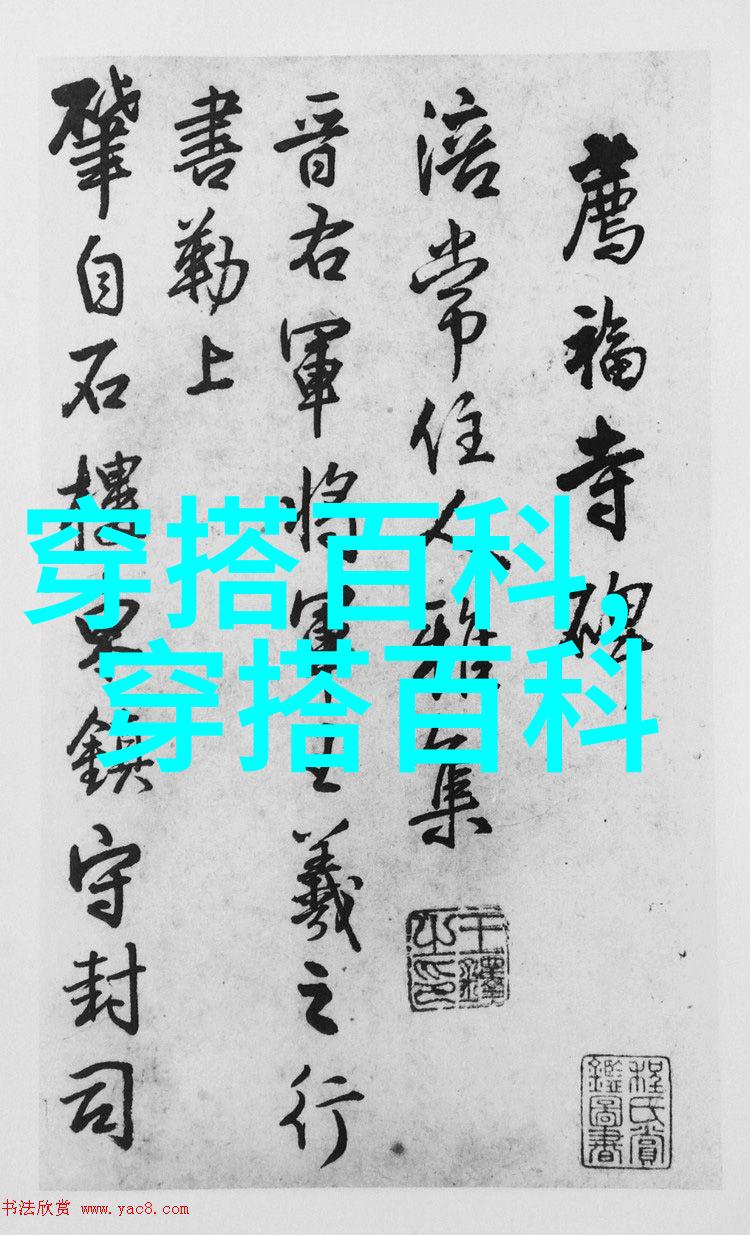 薦福寺碑
涪常住人雅集
晉右軍將軍王羲之行
書勒上
肇自石樓鎮守封司
王鐸之印
程氏賞鑑圖書
穿搭百科，
穿搭百科
书法欣赏 www.yac8.com